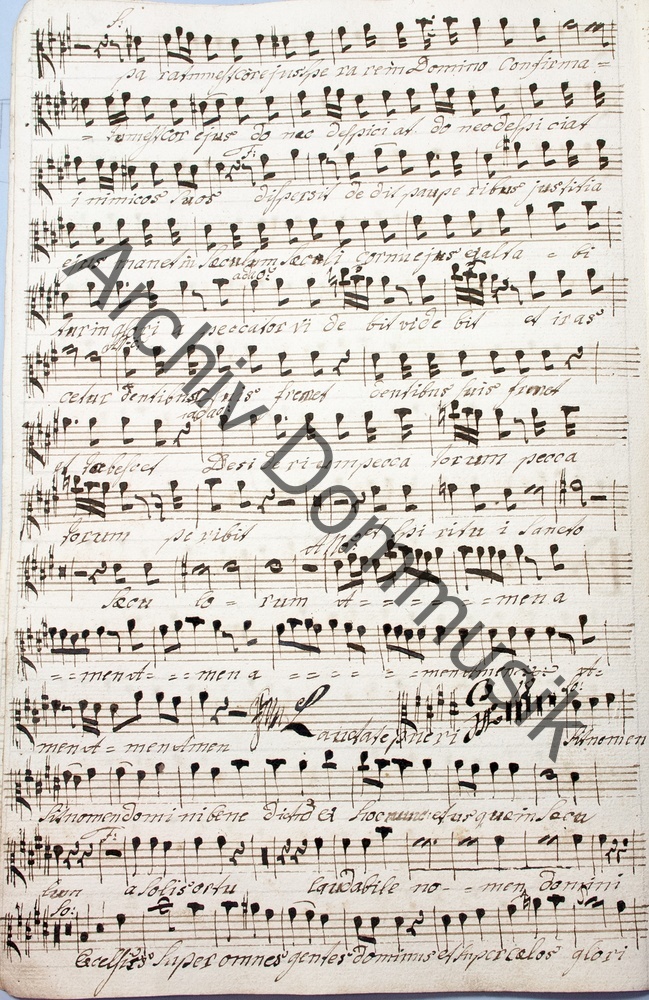 S:
pa ratum est cor ejus spe ra re in Domino Confirma =
= tum est cor ejus do nec despici at do nec despi ciat
T:
i nimicos suos dispersit de dit paupe ribus justitia
ejus manet in sæculum sæculi cornu ejus exalta = bi
a duo:
tur in glori a peccator vi de bit vide bit et iras
cetur dentibus suis fremet dentibus suis fremet
et tabescet Desi de ri um pecca torum pecca
torum pe ribit et spi ritu i sancto
Sæcu lo = rum A = = = = = = men a
= = men A = = men a = = = = = men amen A =
men A = men Amen Laudate pueri Sit nomen
Sit nomen domini bene dictū ex hoc nunc et usque in Secu
T:
lum a solis ortu laudabile no - - men domini
So:
Excelsus super omnes gentes dominus et super cœlos glori
Archiv Dommusik